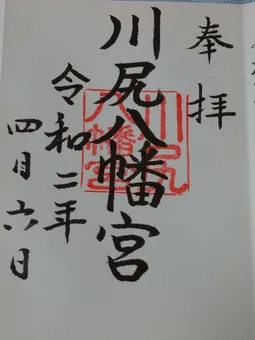 奉拝
川尻八幡宮
川尻
八幡宮
令和二年
四月六日